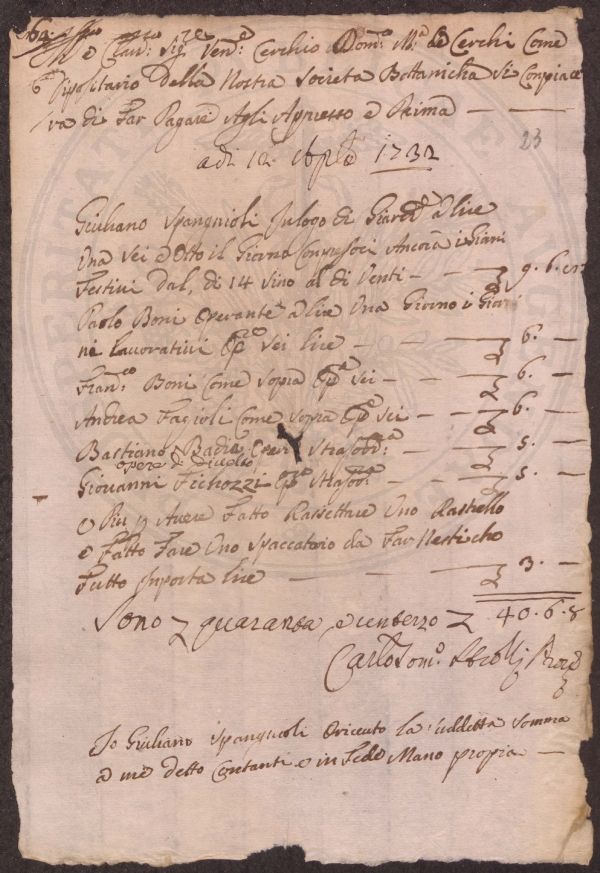 Ill:mo e Clar:mo Sig:re Ven:e Cerchio Dom:o M:a de Cerchi Come
Dipositario Della Nostra Società Bottanicha Si Conpiace
rà di Far Pagare Agli Apresso e Prima
adi 12 1732
23
Giuliano Spangnioli In logo di Giard:e a lire
Una Sei e Otto il Giorno Conpresoci Ancora i Giorni
Festivi dal, di 14 Sino al di Venti 9. 6.
Paolo Boni Operante a lire Una Giorno i Giorni
ni Lavorativi Op:e Sei lire 6. —
Fran:co Boni Come Sopra Op:e Sei 6. —
Andrea Fagioli Come Sopra Op:e Sei 6. —
Bastiano Badii Opere Straord:e 5. —
opere 5 Giovanni Op:e Straord:e 5. —
e Piu p Avere Fatto Rassettare Uno Rastello
e Fatto Fare Uno Spaccatoio da Far Nesti che
Tutto Inporta lire 3. —
Sono quaranta e un terzo 40. 6. 8
Carlo Tom:o Strozzi
Io Giuliano Spangnioli O riceuto la Suddetta Somma
a me detto Contanti e in Fede Mano propria